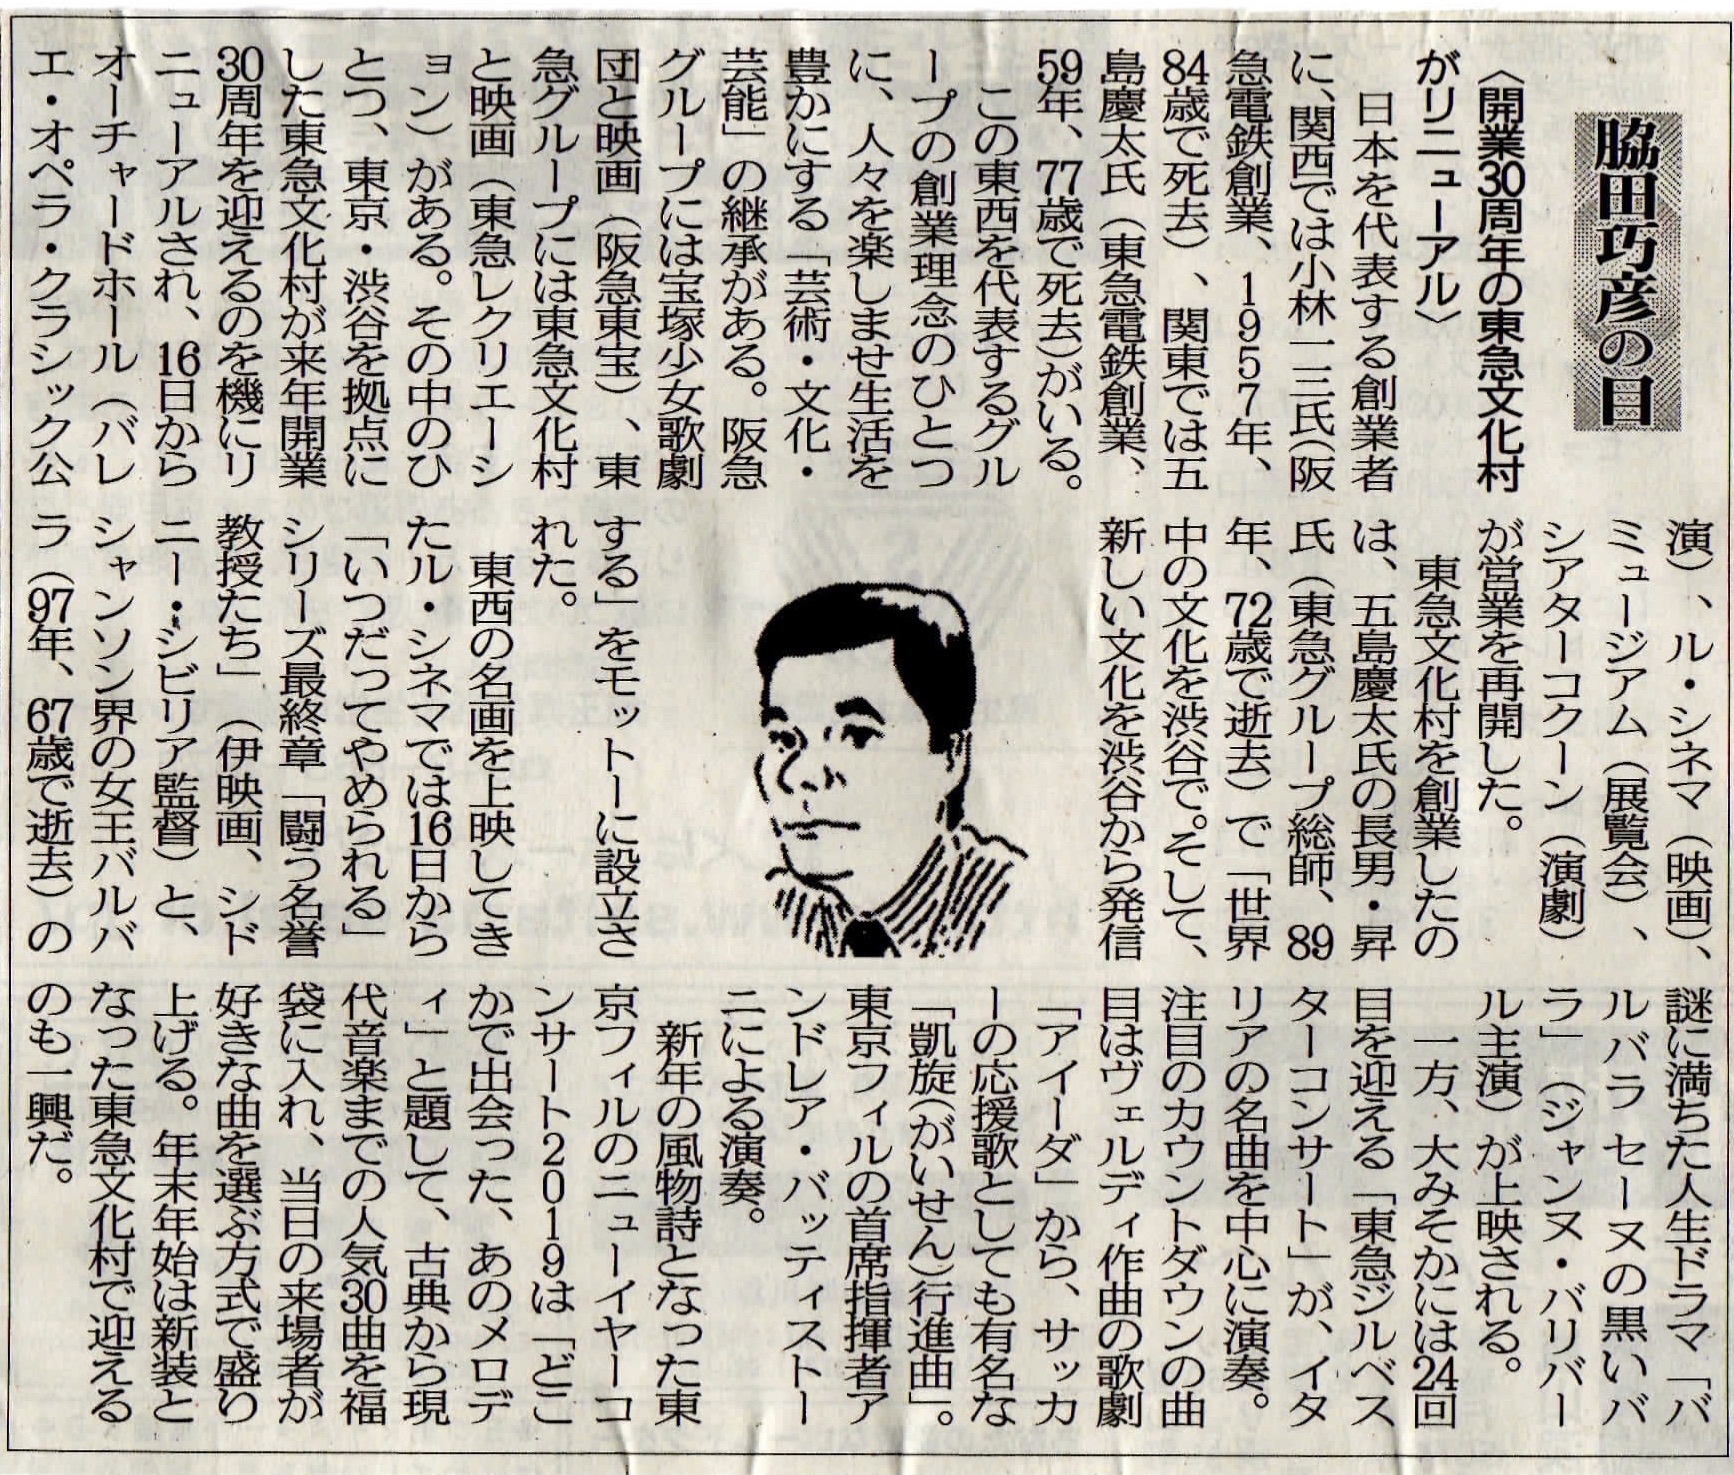 脇田巧彦の目
〈開業30周年の東急文化村
がリニューアル〉
日本を代表する創業者
に、関西では小林一三氏(阪
急電鉄創業、1957年、
84歳で死去)、関東では五
島慶太氏(東急電鉄創業、
59年、77歳で死去)がいる。
この東西を代表するグル
ープの創業理念のひとつ
に、人々を楽しませ生活を
豊かにする「芸術・文化・
芸能」の継承がある。阪急
グループには宝塚少女歌劇
団と映画(阪急東宝)、東
急グループには東急文化村
と映画(東急レクリエーシ
ョン)がある。その中のひ
とつ、東京・渋谷を拠点に
した東急文化村が来年開業
30周年を迎えるのを機にリ
ニューアルされ、16日から
オーチャードホール(バレ
エ・オペラ・クラシック公
演)、ル・シネマ(映画)、
ミュージアム(展覧会)、
シアターコクーン(演劇)
が営業を再開した。
東急文化村を創業したの
は、五島慶太氏の長男・昇
氏(東急グループ総師、89
年、72歳で逝去)で「世界
中の文化を渋谷で。そして、
新しい文化を渋谷から発信
する」をモットーに設立さ
れた。
東西の名画を上映してき
たル・シネマでは16日から
「いつだってやめられる」
シリーズ最終章「闘う名誉
教授たち」(伊映画、シド
ニー・シビリア監督)と、
シャンソン界の女王バルバ
ラ(97年、67歳で逝去)の
謎に満ちた人生ドラマ「バ
ルバラ セーヌの黒いバ
ラ」(ジャンヌ・バリバー
ル主演)が上映される。
一方、大みそかには24回
目を迎える「東急ジルベス
ターコンサート」が、イタ
リアの名曲を中心に演奏。
注目のカウントダウンの曲
目はヴェルディ作曲の歌劇
「アイーダ」から、サッカ
ーの応援歌としても有名な
「凱旋(がいせん)行進曲」。
東京フィルの首席指揮者ア
ンドレア・バッティストー
ニによる演奏。
新年の風物詩となった東
京フィルのニューイヤーコ
ンサート2019は「どこ
かで出会った、あのメロデ
ィ」と題して、古典から現
代音楽までの人気30曲を福
袋に入れ、当日の来場者が
好きな曲を選ぶ方式で盛り
上げる。年末年始は新装と
なった東急文化村で迎える
のも一興だ。